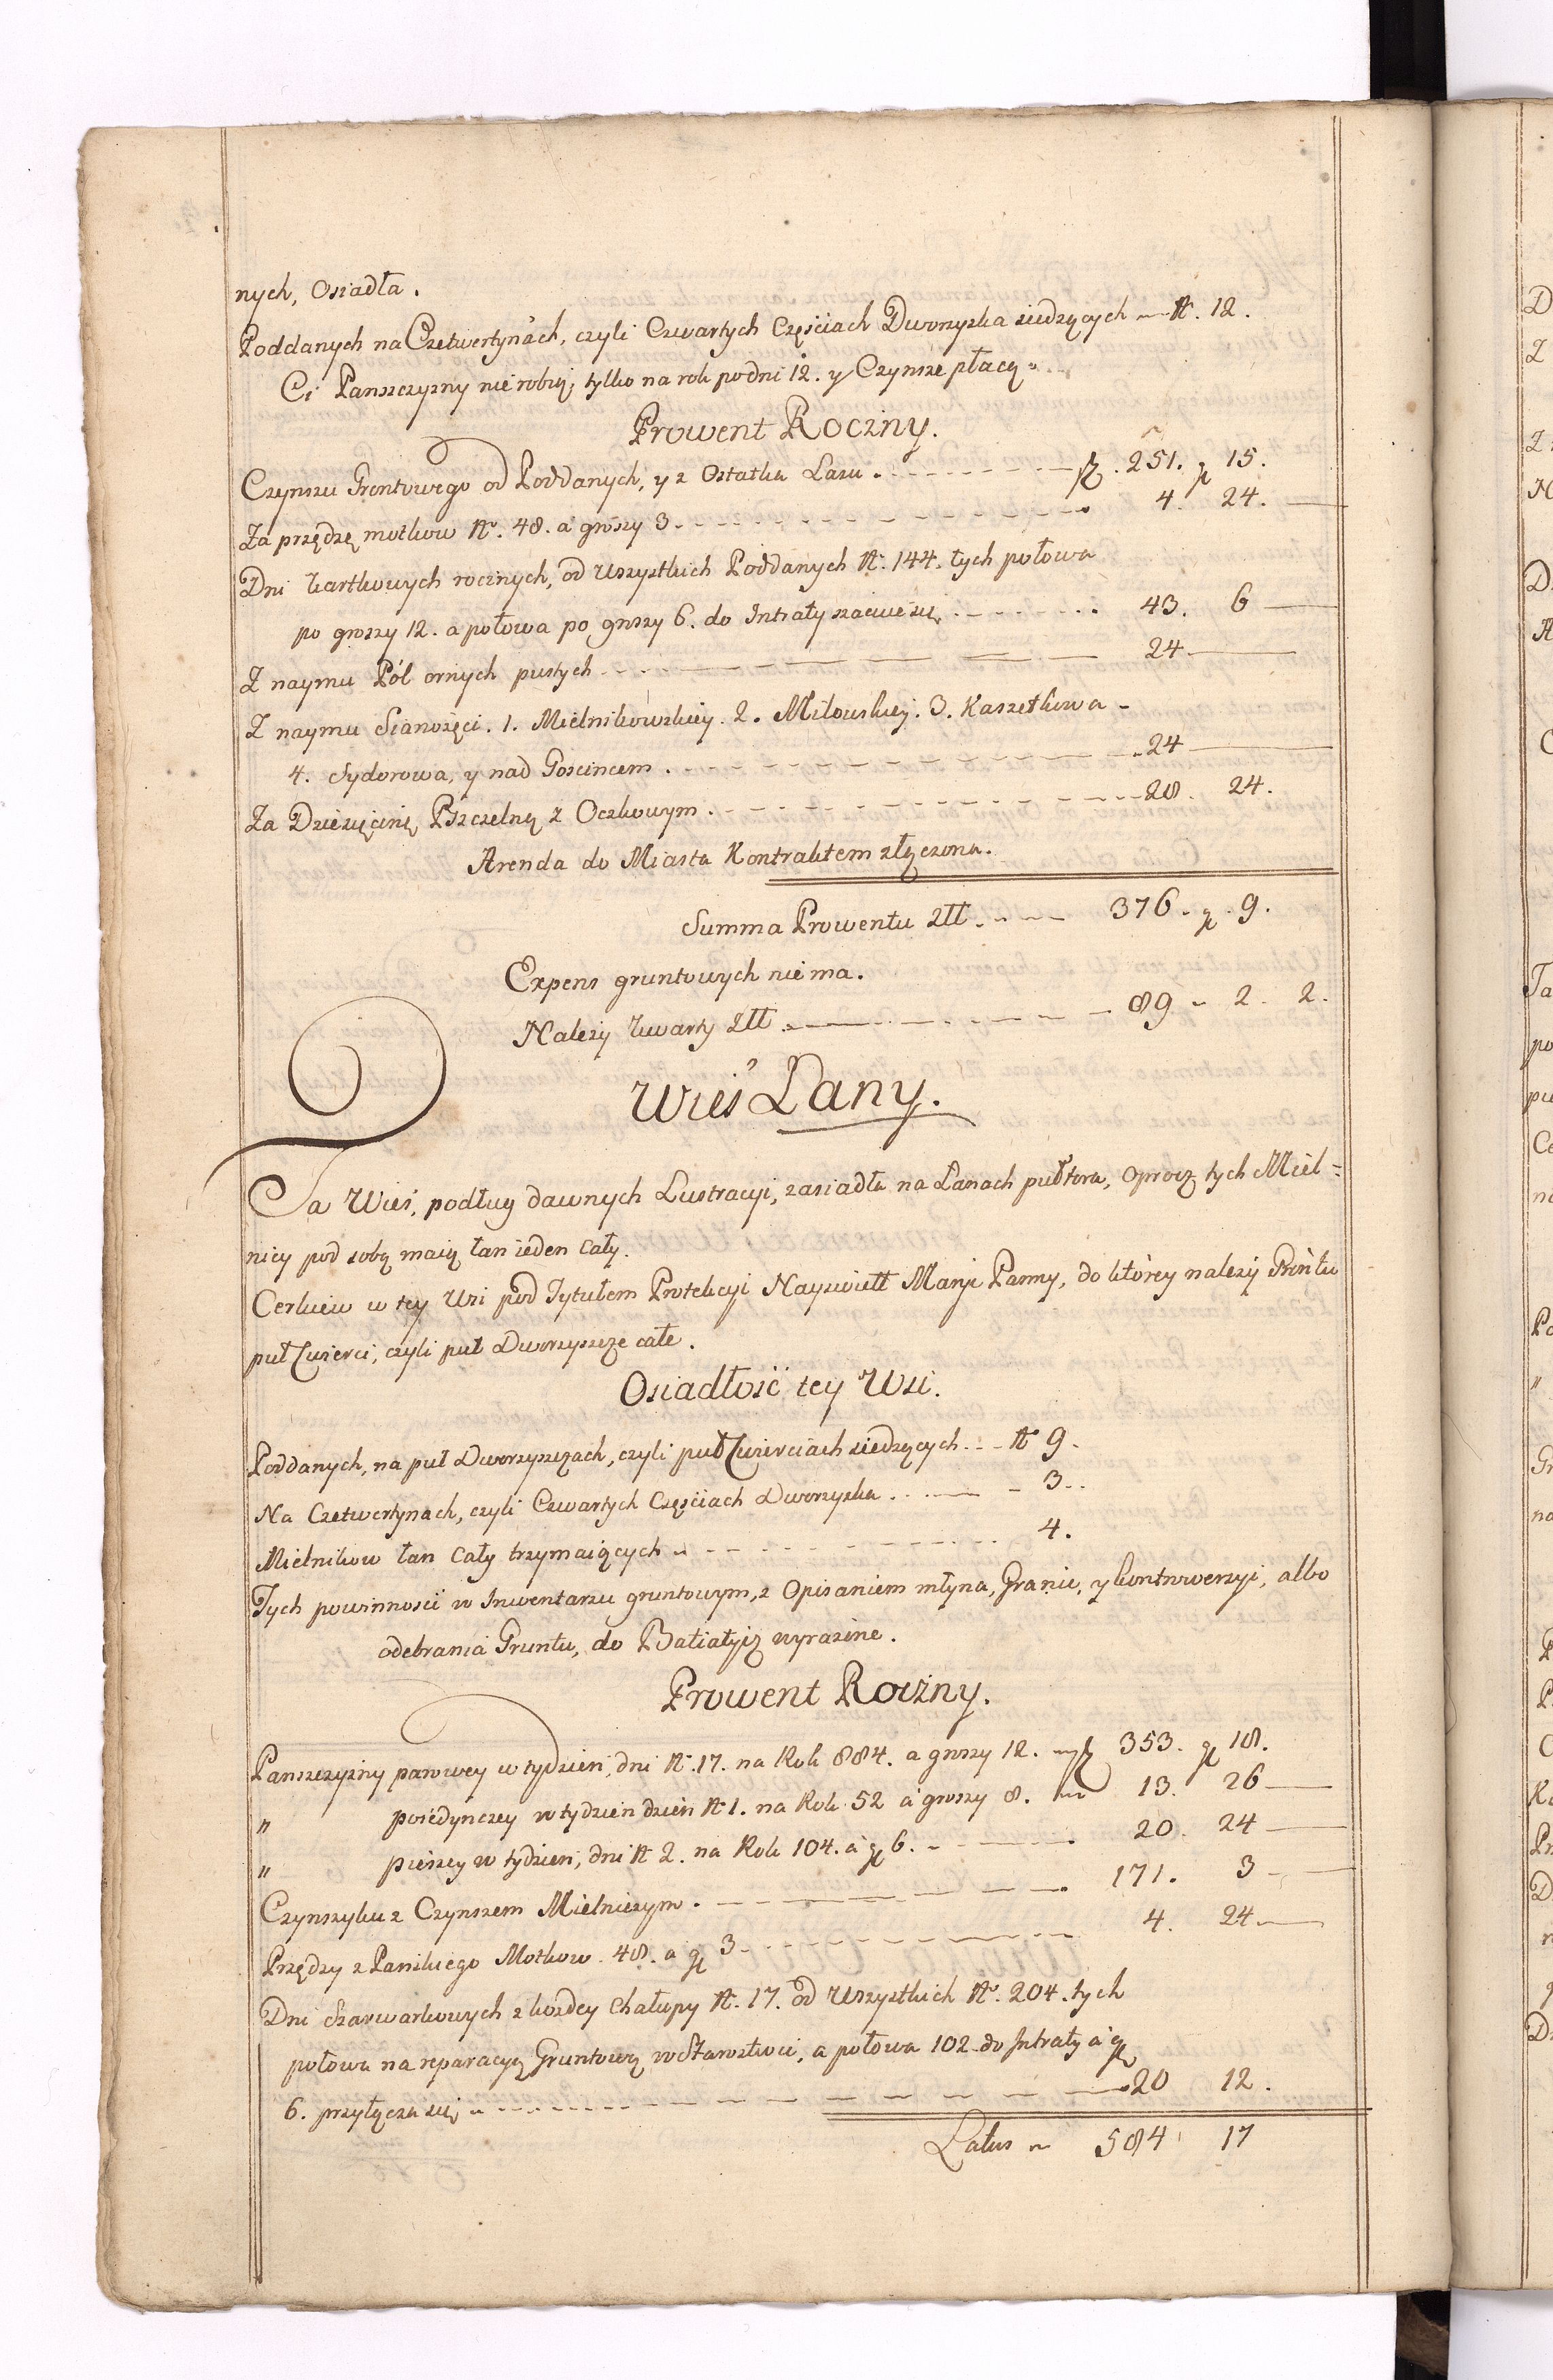 nych, Osiadła.
Poddanych na Czetwertynach, czyli Czwartych Częściach Dworzyska siedzących № 12.
Ci Panszczyzny nie robią, tylko na rok po dni 12. y Czynsze płacą
Prowent Roczny.
Czynszu Grontowego od Poddanych, y z Ostatka Lasu. zł. 251. gr 15.
Za przędzę motkow №. 48. a groszy 3. 4. 24.
Dni karłkowych rocznych, od wszystkich Poddanych №. 144. tych połowa
po groszy 12. a połowa po groszy 6. do Intraty szacuie się. 43. 6
Z naymu Pól ornych pustych 24
Z naymu Sianożęci. 1. Mielnikowskiey. 2. Miłowskiey. 3. Kaszetkowa
4. Sydorowa, y nad Goscincem. 24
Za Dziesięcinę Pszczelną z Oczkowym. 28. 24.
Arenda do Miasta Kontraktem złączona.
Summa Prowentu złł. 376. gr. 9.
Expens gruntowych nie ma.
Należy kwarty złł. 89 2. 2.
Wieś Łany.
Ta Wieś, podług dawnych Lustracyi, zasiadła na Łanach pułtora, oprocz tych Miel=
nicy pod sobą maią łan ieden Cały.
Cerkiew w tey Wsi pod Tytułem Protekcyi Nayswiętt Maryi Panny, do którey należy Grontu
puł Cwierci, czyli puł Dworzyszcze całe.
Osiadłość tey Wsi.
Poddanych, na puł Dworzyszczach, czyli puł Cwierciach siedzących № 9.
Na Czetwertynach, czyli Czwartych Częściach Dworzyska 3.
Mielnikow łan Cały trzymaiących 4.
Tych powinności w Inwentarzu gruntowym, z Opisaniem młyna, Granic, y kontrowersyi, albo
odebrania Gruntu, do Batiatycz wyrażone.
Prowent Roczny.
Panszczyzny parowey w tydzień, dni №. 17. na Rok 884. a groszy 12. zł 353. gr 18.
" poiedynczey w tydzień dzień № 1. na Rok 52 a groszy 8. 13. 26
" pieszey w tydzień, dni № 2. na Rok 104. a gr 6. 20. 24
Czynszyku z Czynszem Mielniczym. 171. 3
Przędzy z Pańskiego Motkow. 48. a gr 3 4. 24
Dni Szarwarkowych z każdey Chałupy №. 17. od wszystkich №. 204. tych
połowa na reparacyą Gruntową w Starostwie, a połowa 102. do Intraty a gr
6. przyłącza się 20 12.
Latus 584 17